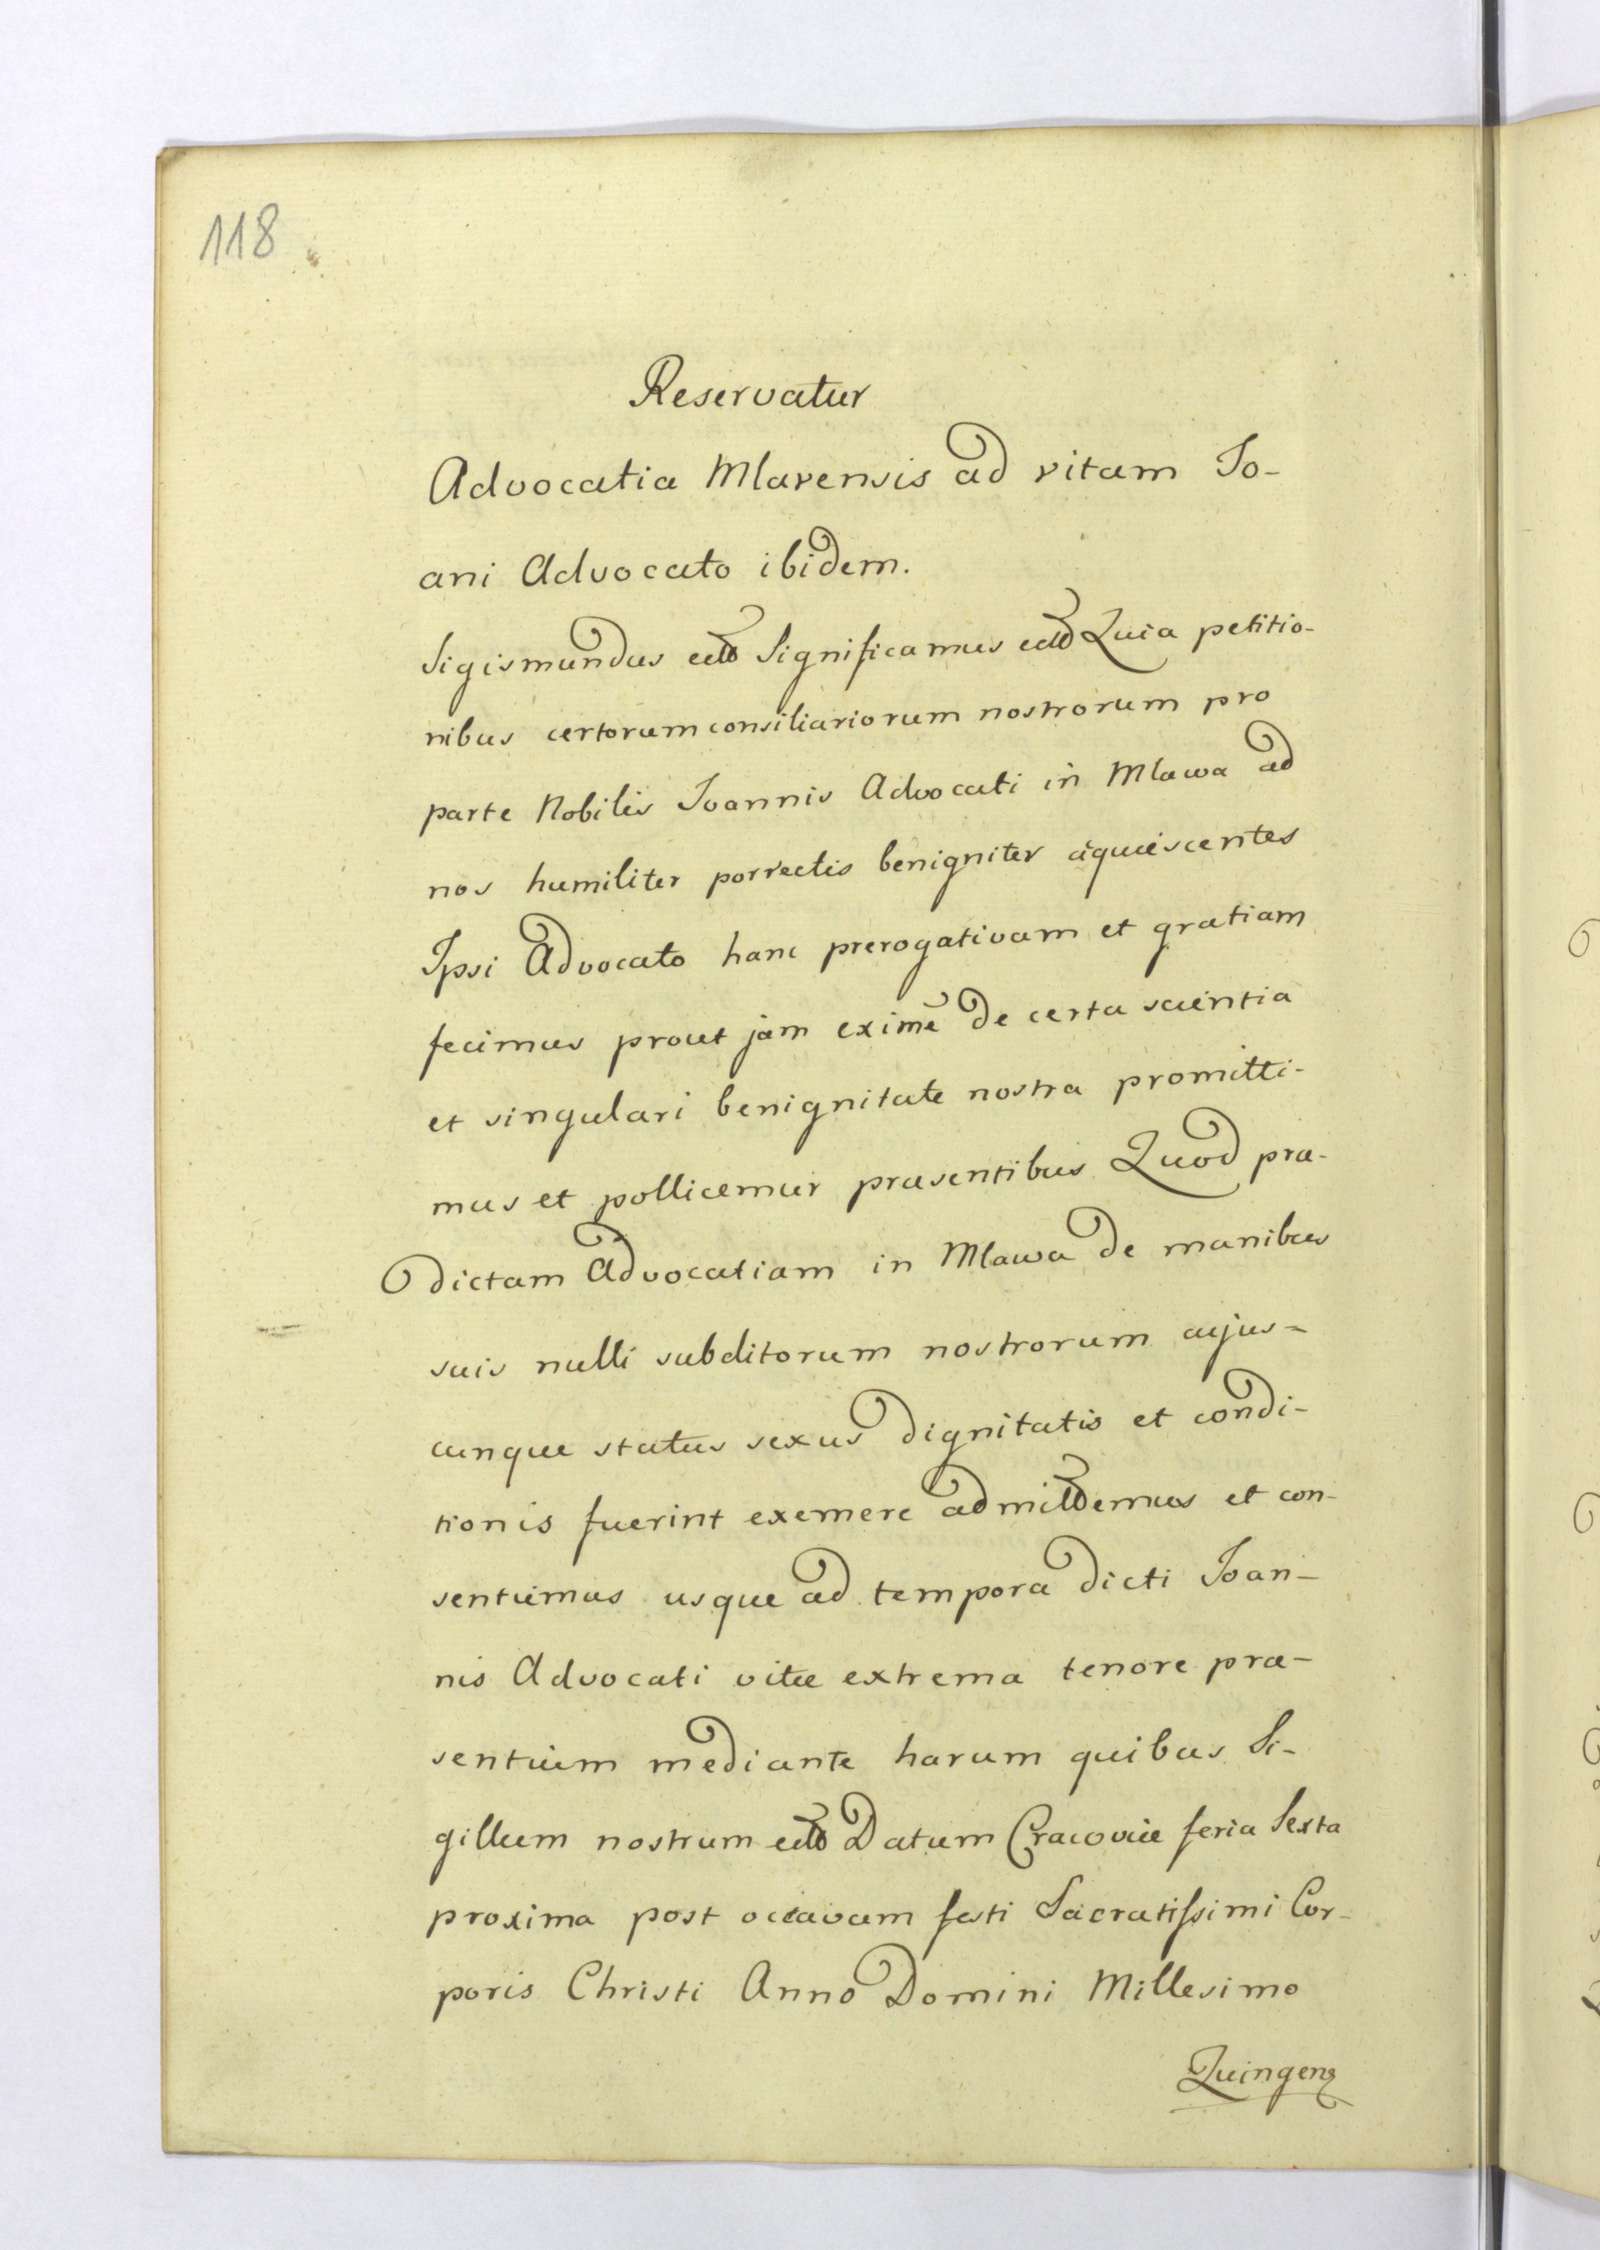 118
Reservatur
Advocatia Mlavensis ad vitam Jo-
ani Advocato ibidem.
Sigismundus Significamus Quia petitio-
nibus certorum consiliariorum nostrorum pro
parte Nobilis Joannis Advocati in Mlawa ad
nos humiliter porrectis benigniter aquiescentes
Ipsi Advocato hanc prerogativam et gratiam
fecimus prout jam de certa scientia
et singulari benignitate nostra promitti-
mus et pollicemur praesentibus Quod prae-
dictam Advocatiam in Mlawa de manibus
suis nulli subditorum nostrorum cujus-
cunque status sexus dignitatis et condi-
tionis fuerint exemere et con-
sentiemus usque ad tempora dicti Joan-
nis Advocati vitae extrema tenore prae-
sentium mediante harum quibus Si-
gillum nostrum Datum Cracoviae feria Sexta
proxima post octavam festi Sacratissimi Cor-
poris Christi Anno Domini Millesimo